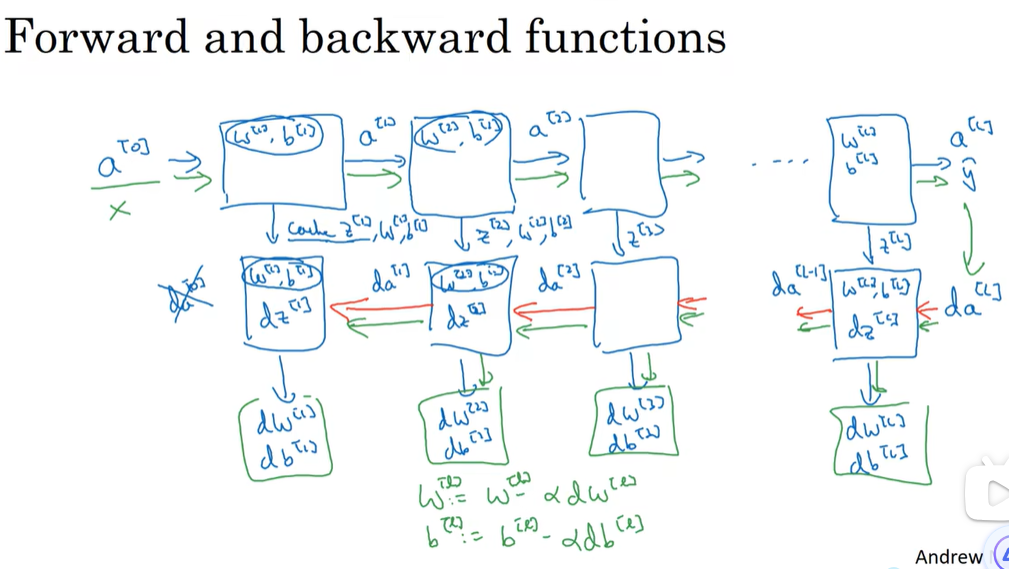 Forward and backward functions
a^[0] w^[1], b^[1] a^[1] w^[2], b^[2] a^[2] .... w^[L] b^[L] a^[L]
x ŷ
cache z^[1], w^[1], b^[1] z^[2], w^[2], b^[2] z^[3] z^[L]
da^[0] w^[1], b^[1] da^[1] w^[2], b^[2] da^[2] da^[L-1] w^[L], b^[L] da^[L]
dz^[1] dz^[2] dz^[L]
dw^[1] dw^[2] dw^[3] dw^[L]
db^[1] db^[2] db^[3] db^[L]
w^[l] := w^[l] - αdw^[l]
b^[l] := b^[l] - αdb^[l]
Andrew